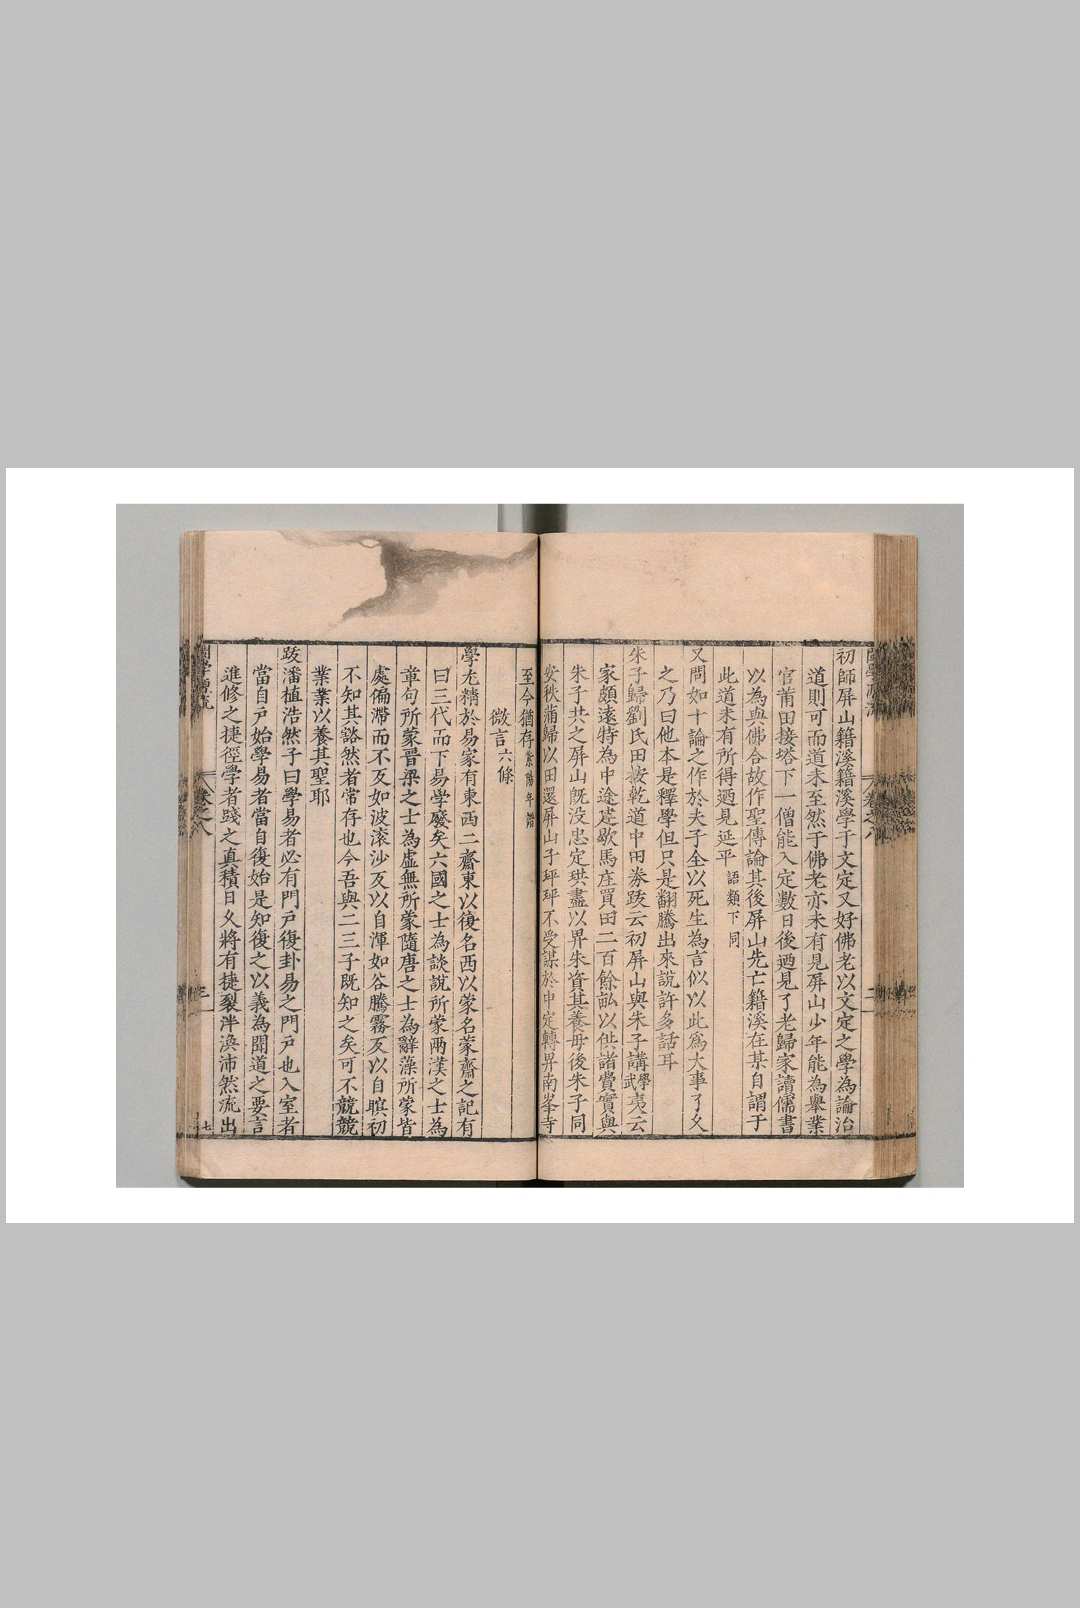 初師屏山籍溪籍溪學于文定又好佛老以文定之學為論治
道則可而道未至然于佛老亦未有見屏山少年能為舉業
官莆田接塔下一僧能入定數日後迺見了老歸家讀儒書
以為與佛合故作聖傳論其後屏山先亡籍溪在某自謂于
此道未有所得迺見延平語類下同
又問如十論之作於夫子全以死生為言似以此為大事了久
之乃曰他本是釋學但只是翻騰出來說許多話耳
朱子歸劉氏田按乾道中田券跋云初屏山與朱子講學武夷云
家頗遠特為中途建歇馬庄買田二百餘畝以供諸費實與
朱子共之屏山旣没忠定珙盡以畀朱資其養母後朱子同
安秩滿歸以田還屏山子坪坪不受謀於中定轉畀南峯寺
至今猶存紫陽年譜
微言六條
學尤精於易家有東西二齋東以復名西以蒙名蒙齋之記有
曰三代而下易學廢矣六國之士為談說所蒙兩漢之士為
章句所蒙晉梁之士為虛無所蒙隨唐之士為辭藻所蒙皆
處偏滯而不反如波滚沙反以自渾如谷騰霧反以自瞑初
不知其豁然者常存也今吾與二三子既知之矣可不競競
業業以養其聖耶
跋潘植浩然子曰學易者必有門戶復卦易之門戶也入室者
當自戶始學易者當自復始是知復之以義為聞道之要言
進修之捷徑學者踐之真積日久將有捷裂泮渙沛然流出
卷之八